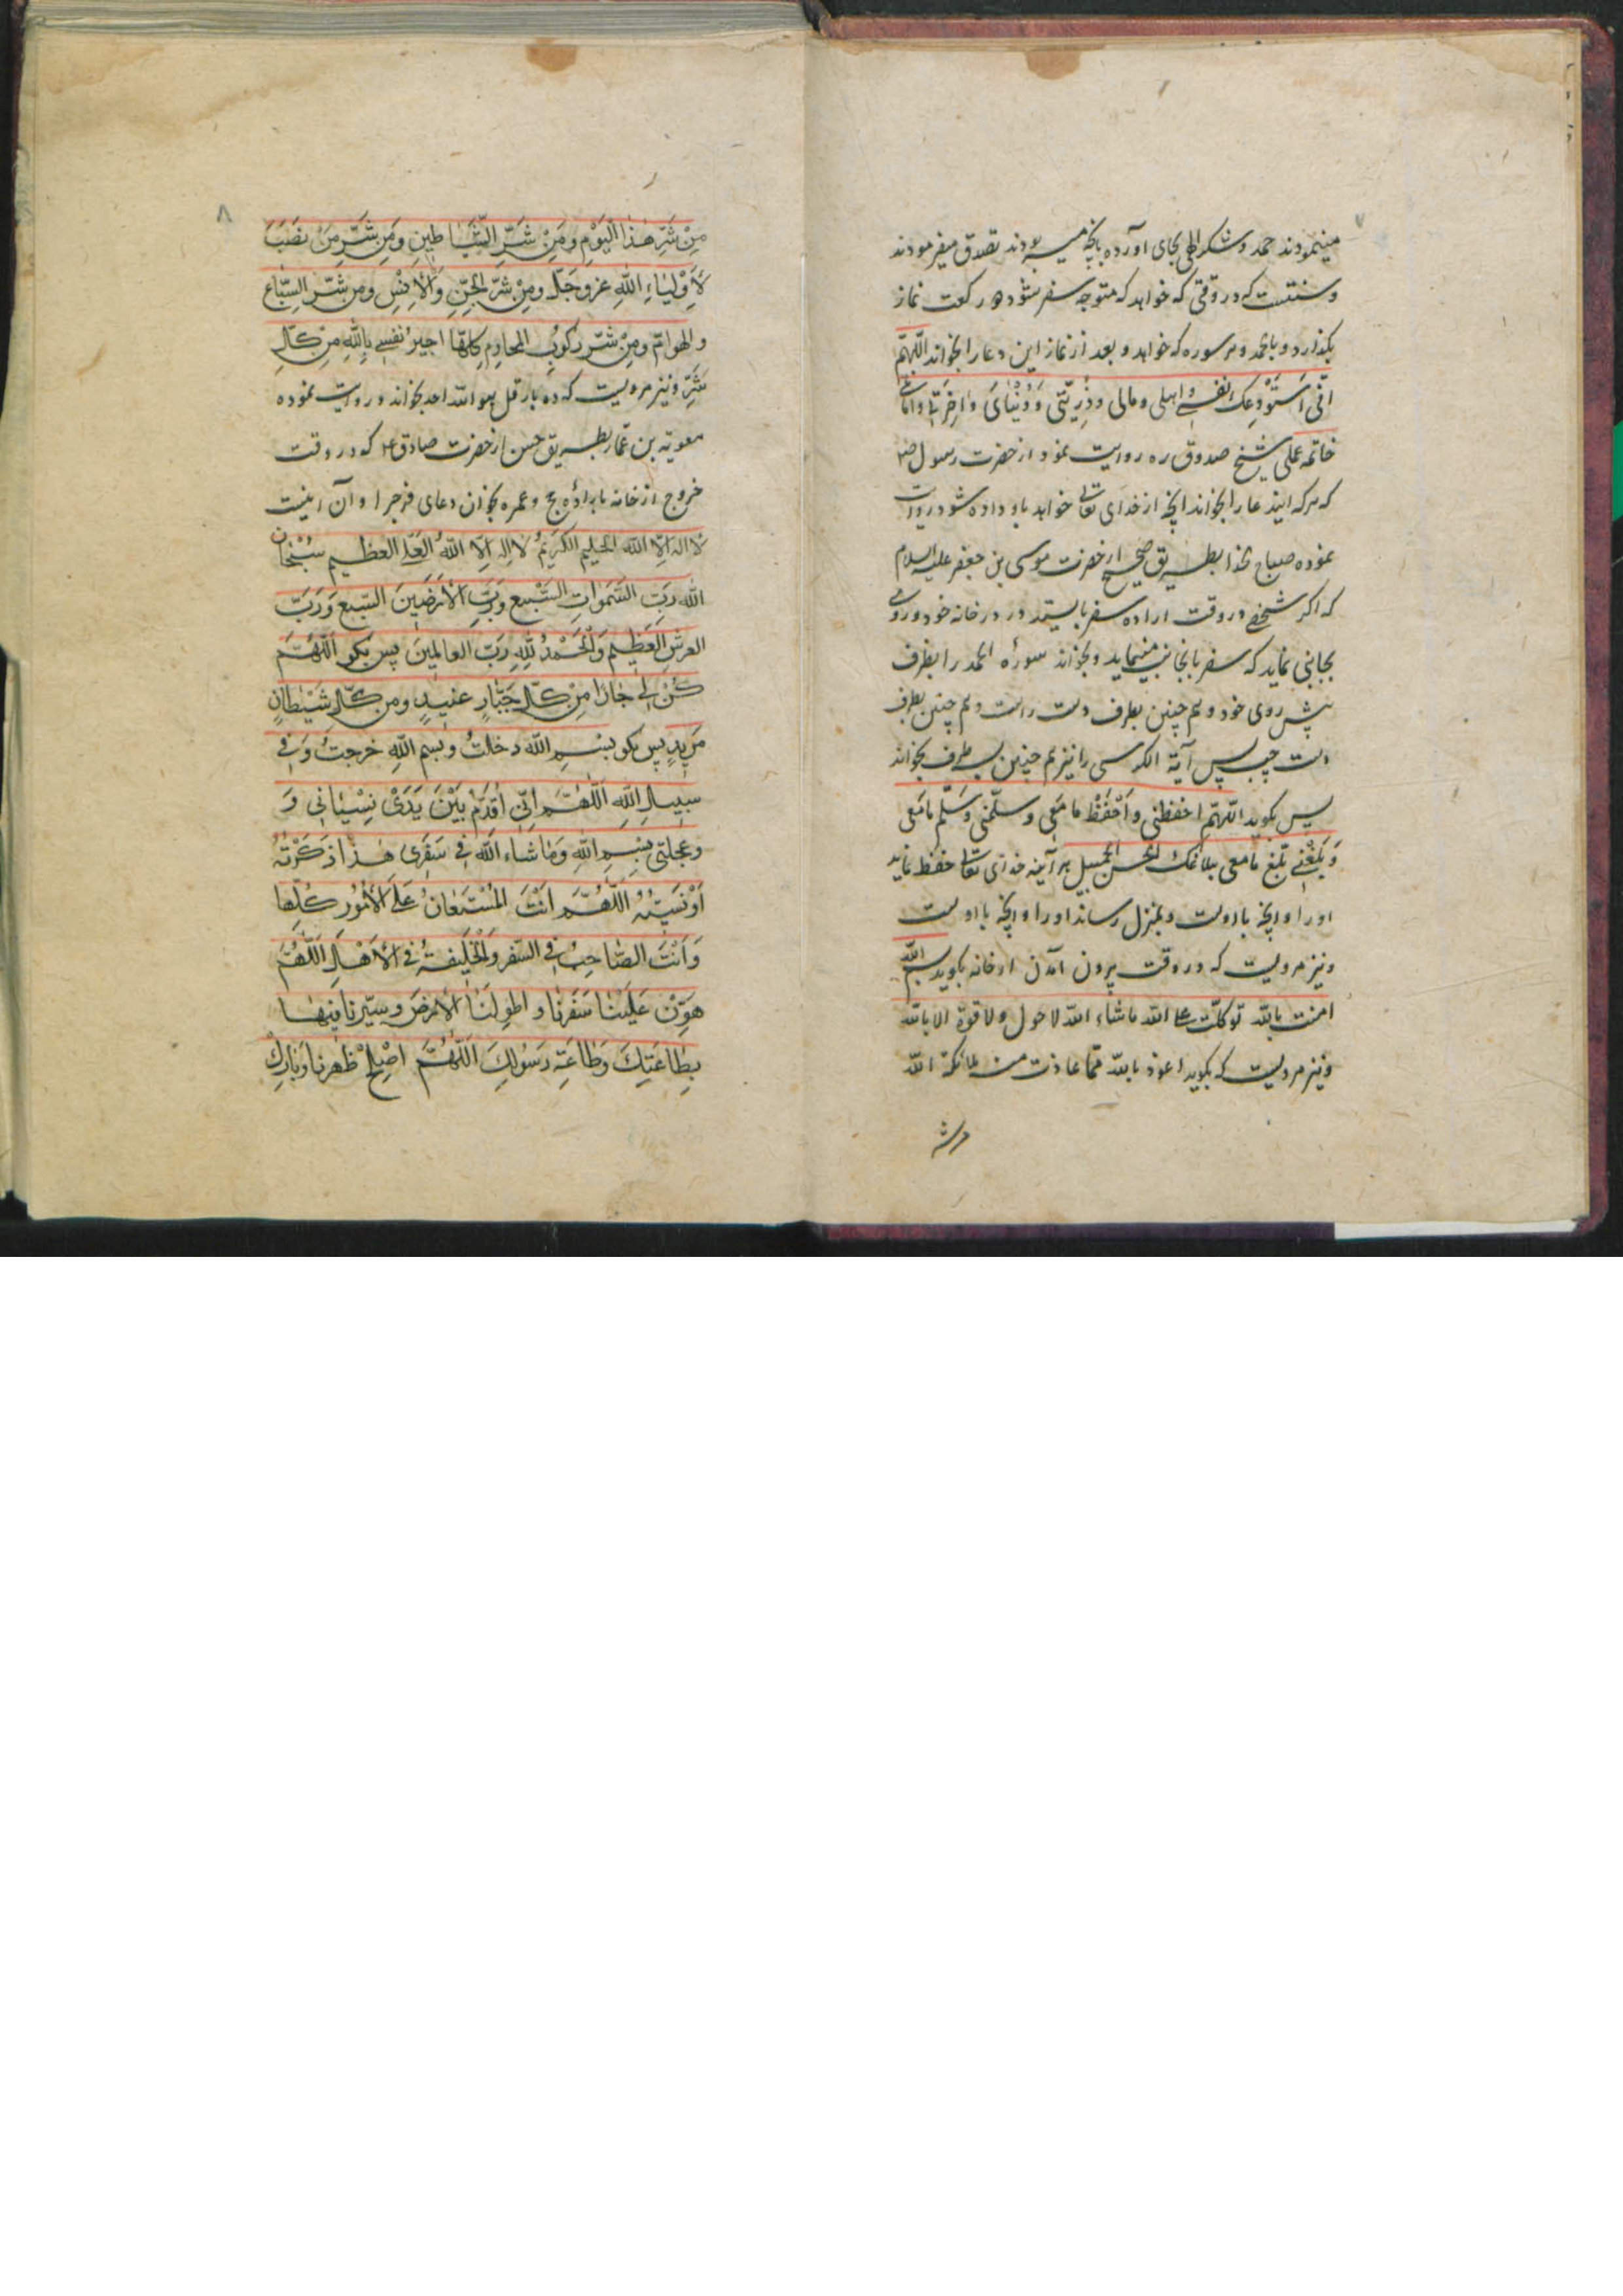 ۷
مینمودند حمد و شکر الهی بجای آورده بآنچه میسر بودند تصدق میفرمودند
و سنتست که در وقتی که خواهد که متوجه سفر شود دو رکعت نماز
بگذارد و باحمد و هر سوره که خواهد و بعد از نماز این دعا را بخواند اللّهمّ
انّی اَستَوْدِعک نفسی و اهلی و مالی و ذُرِیّتی وَ دُنْیایَ وَ اخِرَتی و امانتی
خاتمة عملی شیخ صدوق ره روایت نمود از حضرت رسول ص
که هر که ایندعا را بخواند آنچه از خدای تعالی خواهد باو داده شود و روایت
نموده صباح حذا بطریق صحیح از حضرت موسی بن جعفر علیه السلام
که اکر شخصی در وقت اراده سفر بایستد در در خانه خود و روی
بجانبی نماید که سفر بآنجانب مینماید و بخواند سوره الحمد را بطرف
پیش روی خود و هم چنین بطرف دست راست و هم چنین بطرف
دست چپ پس آیة الکرسی را نیز هم چنین بسه طرف بخواند
پس بگوید اللّهمّ احفظنی وَاَحْفَظْ ما مَعی وسلّمنی وَسَلّم ما مَعی
وَبَلِغْنی بَلّغ ما معی ببلاغک الحسن الجمیل هر آینه خدای تعالی حفظ نماید
او را و آنچه با اوست و بمنزل رساند او را و آنچه با اوست
و نیز مرویست که در وقت بیرون آمدن از خانه بگوید بسم الله
امنت بالله توکلت علی الله ما شاء الله لا حول و لا قوة الا بالله
و نیز مرویست که بگوید اعوذ بالله مما عاذت منه ملائکة الله
من شر
۸
مِنْ شَرِّ هٰذا الْیَوْمِ وَ مِنْ شَرِّ الشَّیٰاطِینِ وَ مِن شَرِّ مَنْ نَصَبَ
لأَوْلِیٰاءِ اللّٰهِ عزّ وجَلّ ومِنْ شرّ الجِنّ وَالْاِنْسِ ومن شرّ السِّبٰاع
والهوامّ ومِنْ شرّ رُکُوبِ المحارِم کلّها اجیرُ نفسی بِاللّٰهِ مِنْ کلّ
شَرّ و نیز مرویست که ده بار قل هو الله احد بخواند و روایت نموده
معویة بن عمّار بطریق حسن از حضرت صادق ع که در وقت
خروج از خانه باراده حج و عمره بخوان دعای فرجرا و آن اینست
لا اله الّا الله الحلیم الکریمُ لا اله الّا اللّٰهُ العَلیّ العظیم سُبْحٰانَ
اللّٰه رَبّ السَّمٰوٰاتِ السَّبْع وَرَبِّ الْاَرَضینَ السّبع وَرَبّ
العرش العَظِیم وَالْحَمْدُ لِلّٰهِ رَبّ العالمینَ پس بگو اَللّٰهُمّ
کُنْ لی جٰارًا مِنْ کلّ جَبّارٍ عنیدٍ ومن کلّ شَیْطانٍ
مَریدٍ پس بگو بِسْمِ اللّٰه دخلتُ وبسم اللّٰهِ خرجتُ وَفی
سبیلِ اللّٰهِ اَللّٰهُمّ اِنّی اُقَدِّمُ بَیْنَ یَدَیْ نِسْیٰانی وَ
وعَجلتی بِسْمِ اللّٰهِ وَمٰا شٰاء اللّٰه فی سَفَری هٰذا ذَکَرْتُهُ
اَوْ نَسیتُهُ اَللّٰهُمَّ اَنْتَ المُسْتَعٰانُ عَلَی الْاُمُور کُلِّها
وَاَنْتَ الصّٰاحِبُ فی السّفر وَالْخَلیفةُ فی الْاَهْلِ اَللّٰهُمّ
هَوِّنْ عَلَیْنٰا سَفَرَنٰا و اطوِ لَنٰا الْاَرْضَ وسیّرنا فیهٰا
بِطٰاعَتِکَ وَطٰاعَةِ رَسُولِکَ اَللّٰهُمَّ اصْلِحْ ظهرنا وَبٰارِکْ